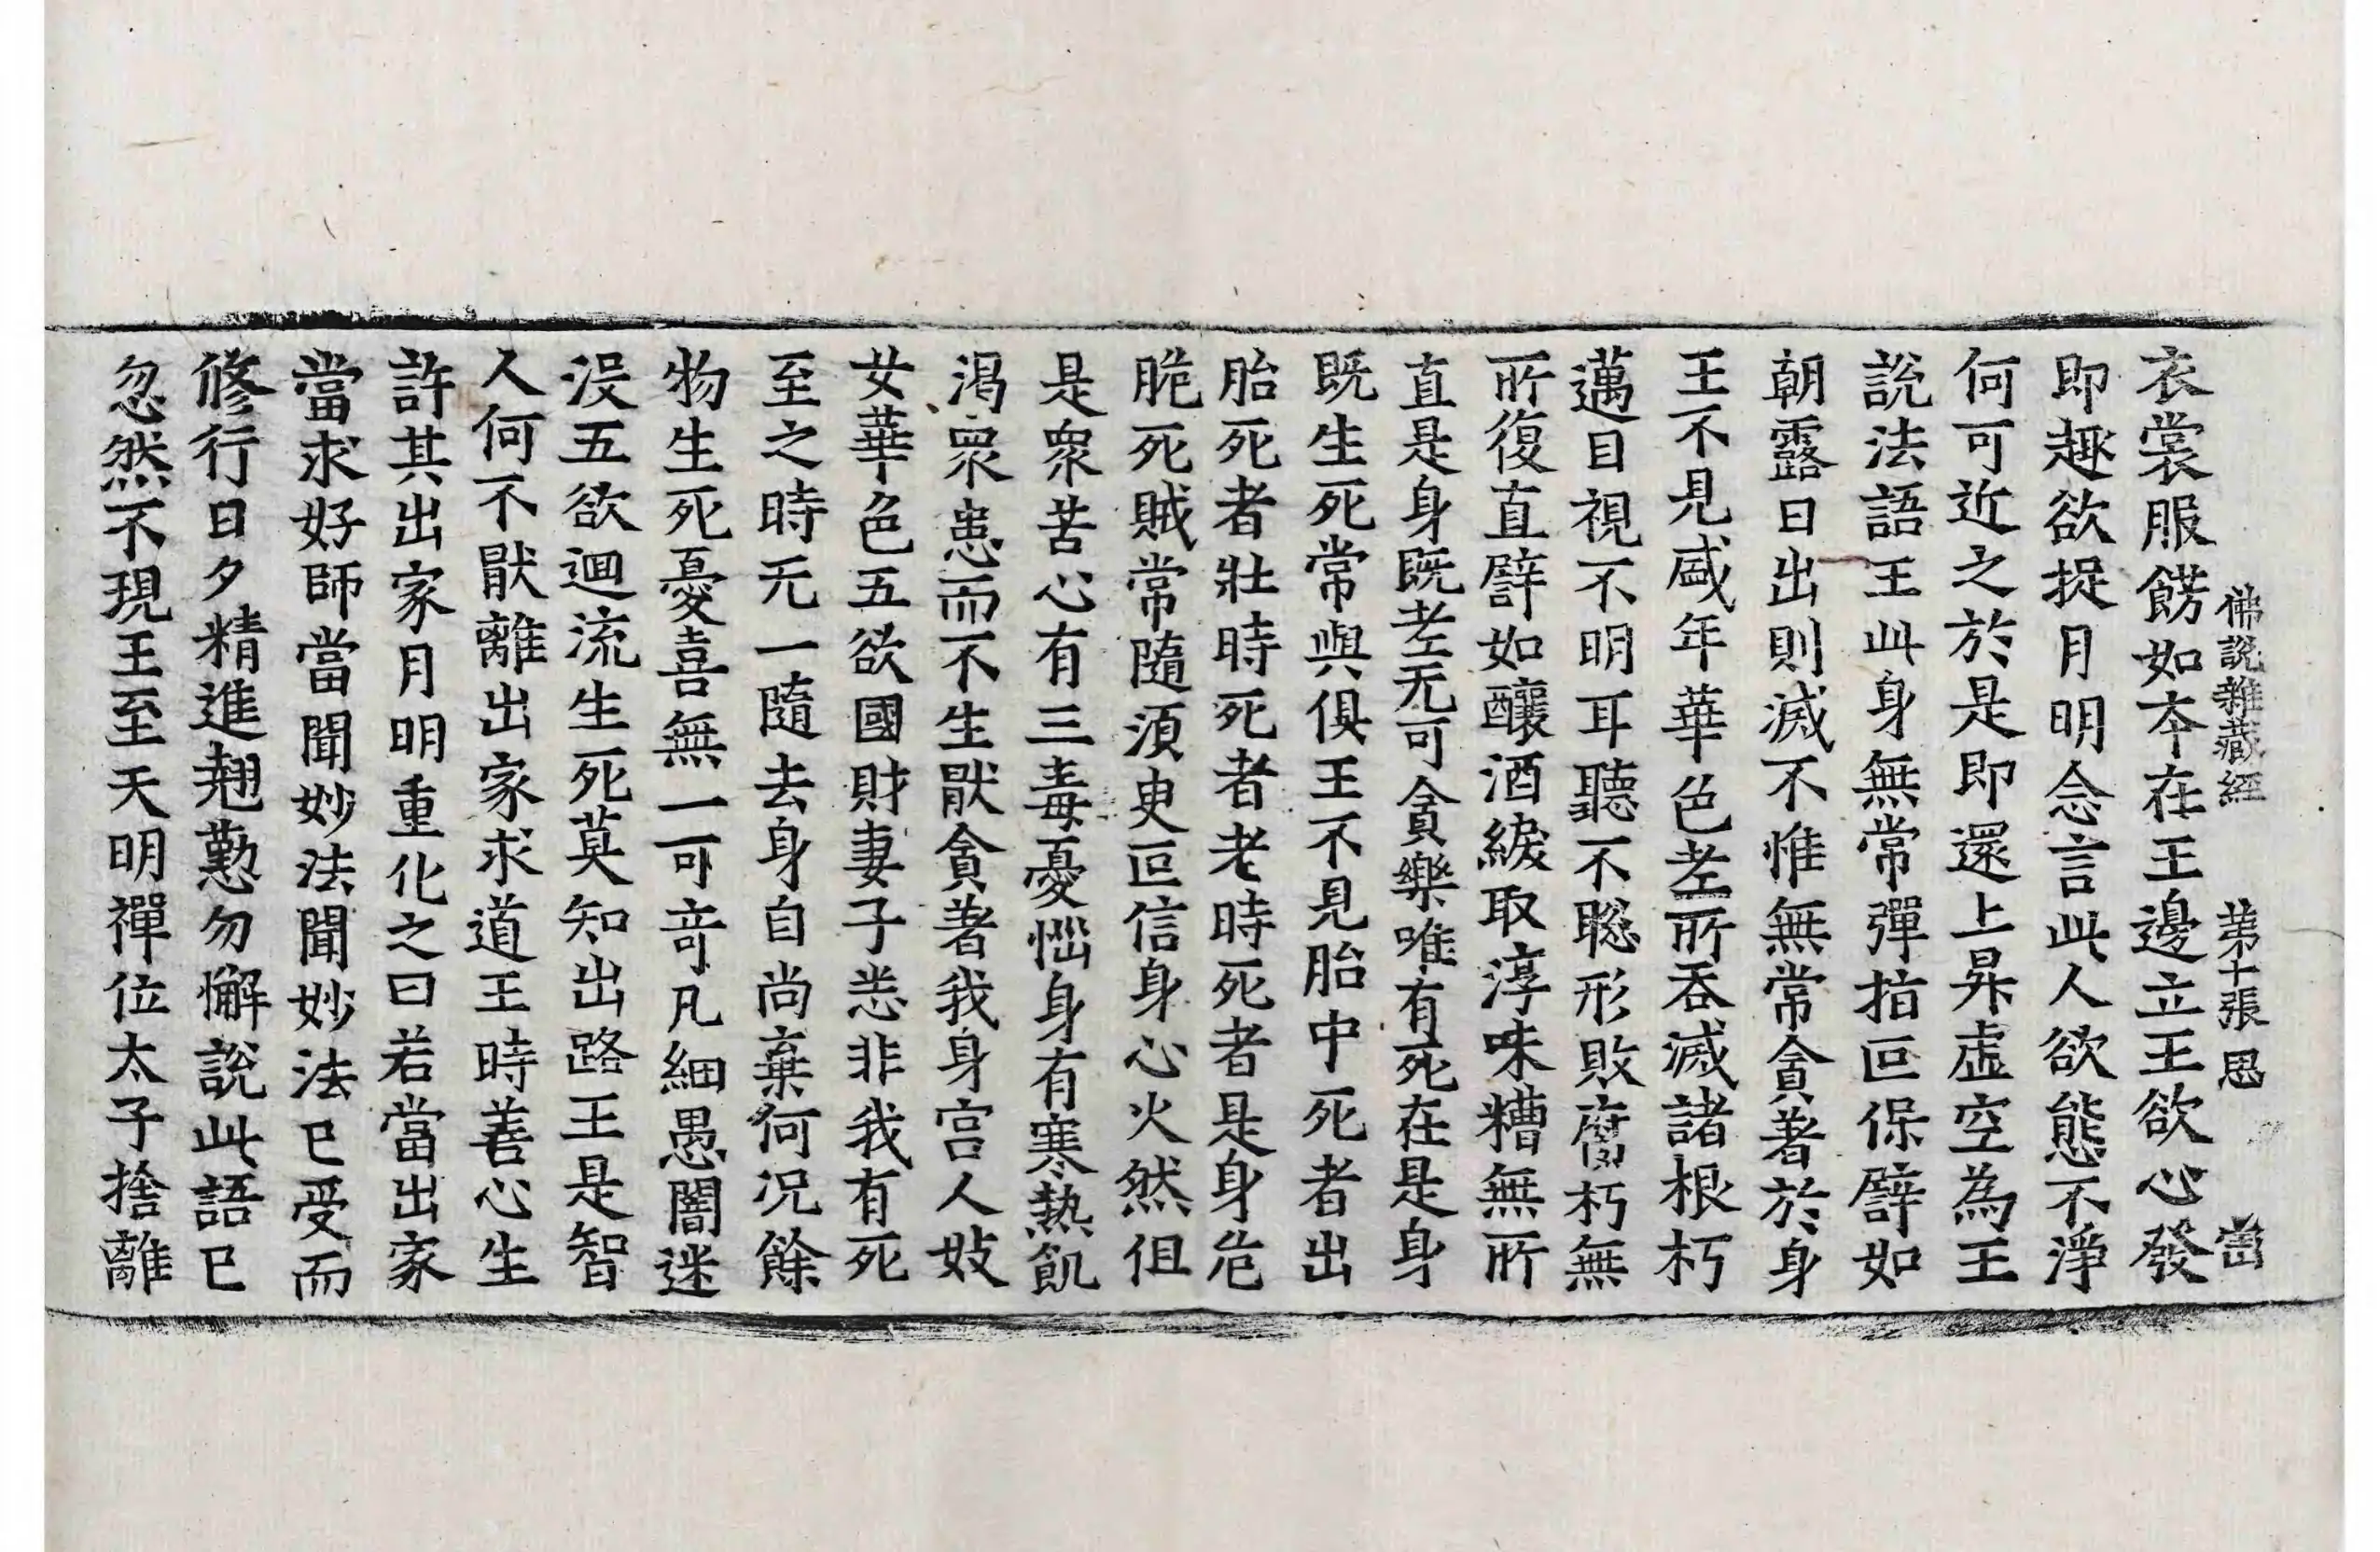 佛說雜藏經 第十張 思
衣裳服餝如本在王邊立王欲心發
即趣欲捉月明念言此人欲態不淨
何可近之於是即還上昇虛空為王
說法語王此身無常彈指叵保譬如
朝露日出則滅不惟無常貪著於身
王不見盛年華色老所吞滅諸根朽
邁目視不明耳聽不聡形敗腐朽無
所復直譬如釀酒䋈取淳味糟無所
直是身既老无可貪樂唯有死在是身
既生死常與俱王不見胎中死者出
胎死者壯時死者老時死者是身危
脆死賊常隨須臾叵信身心火然但
是衆苦心有三毒憂惱身有寒熱飢
渴衆患而不生猒貪著我身宮人妓
女華色五欲國財妻子悉非我有死
至之時无一隨去身自尚棄何況餘
物生死憂喜無一可竒凡細愚闇迷
沒五欲迴流生死莫知出路王是智
人何不猒離出家求道王時善心生
許其出家月明重化之曰若當出家
當求好師當聞妙法聞妙法已受而
修行日夕精進翹勤勿懈說此語已
忽然不現王至天明禪位太子捨離